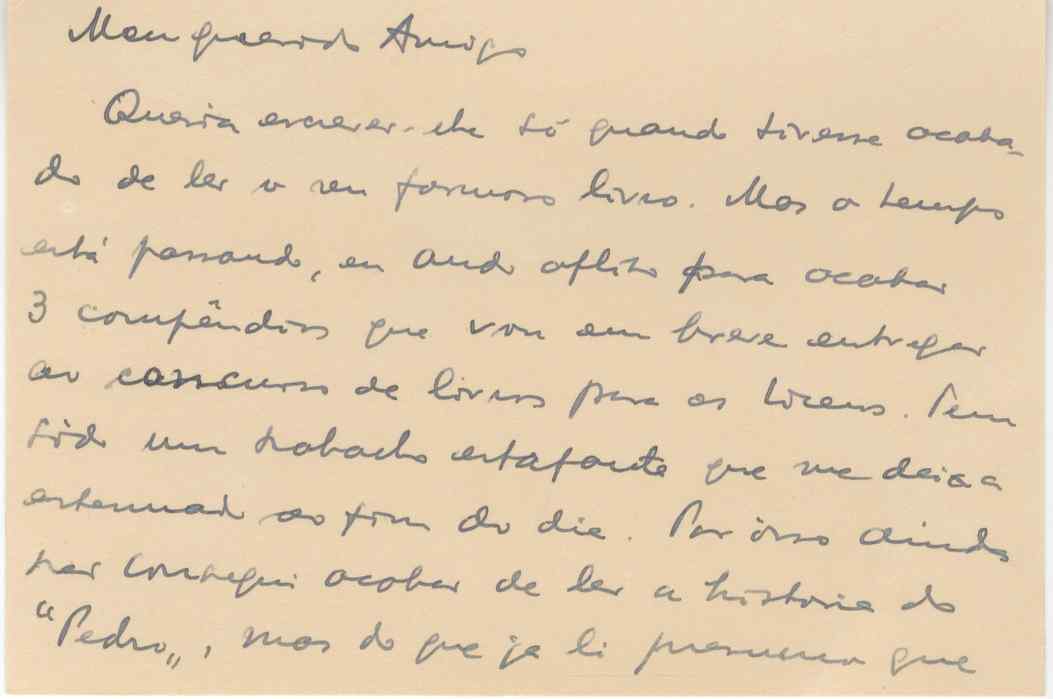 Meu querido Amigo
Queria escrever-lhe só quando tivesse acaba-
do de ler o seu formoso livro. Mas o tempo
está passando, eu ando aflito para acabar
3 compêndios que vou em breve entregar
ao concurso de livros para os liceus. Tem
sido um trabalho estafante que me deixa
extenuado ao fim do dia. Por isso ainda
não consegui acabar de ler a história do
"Pedro„, mas do que já li presumo que